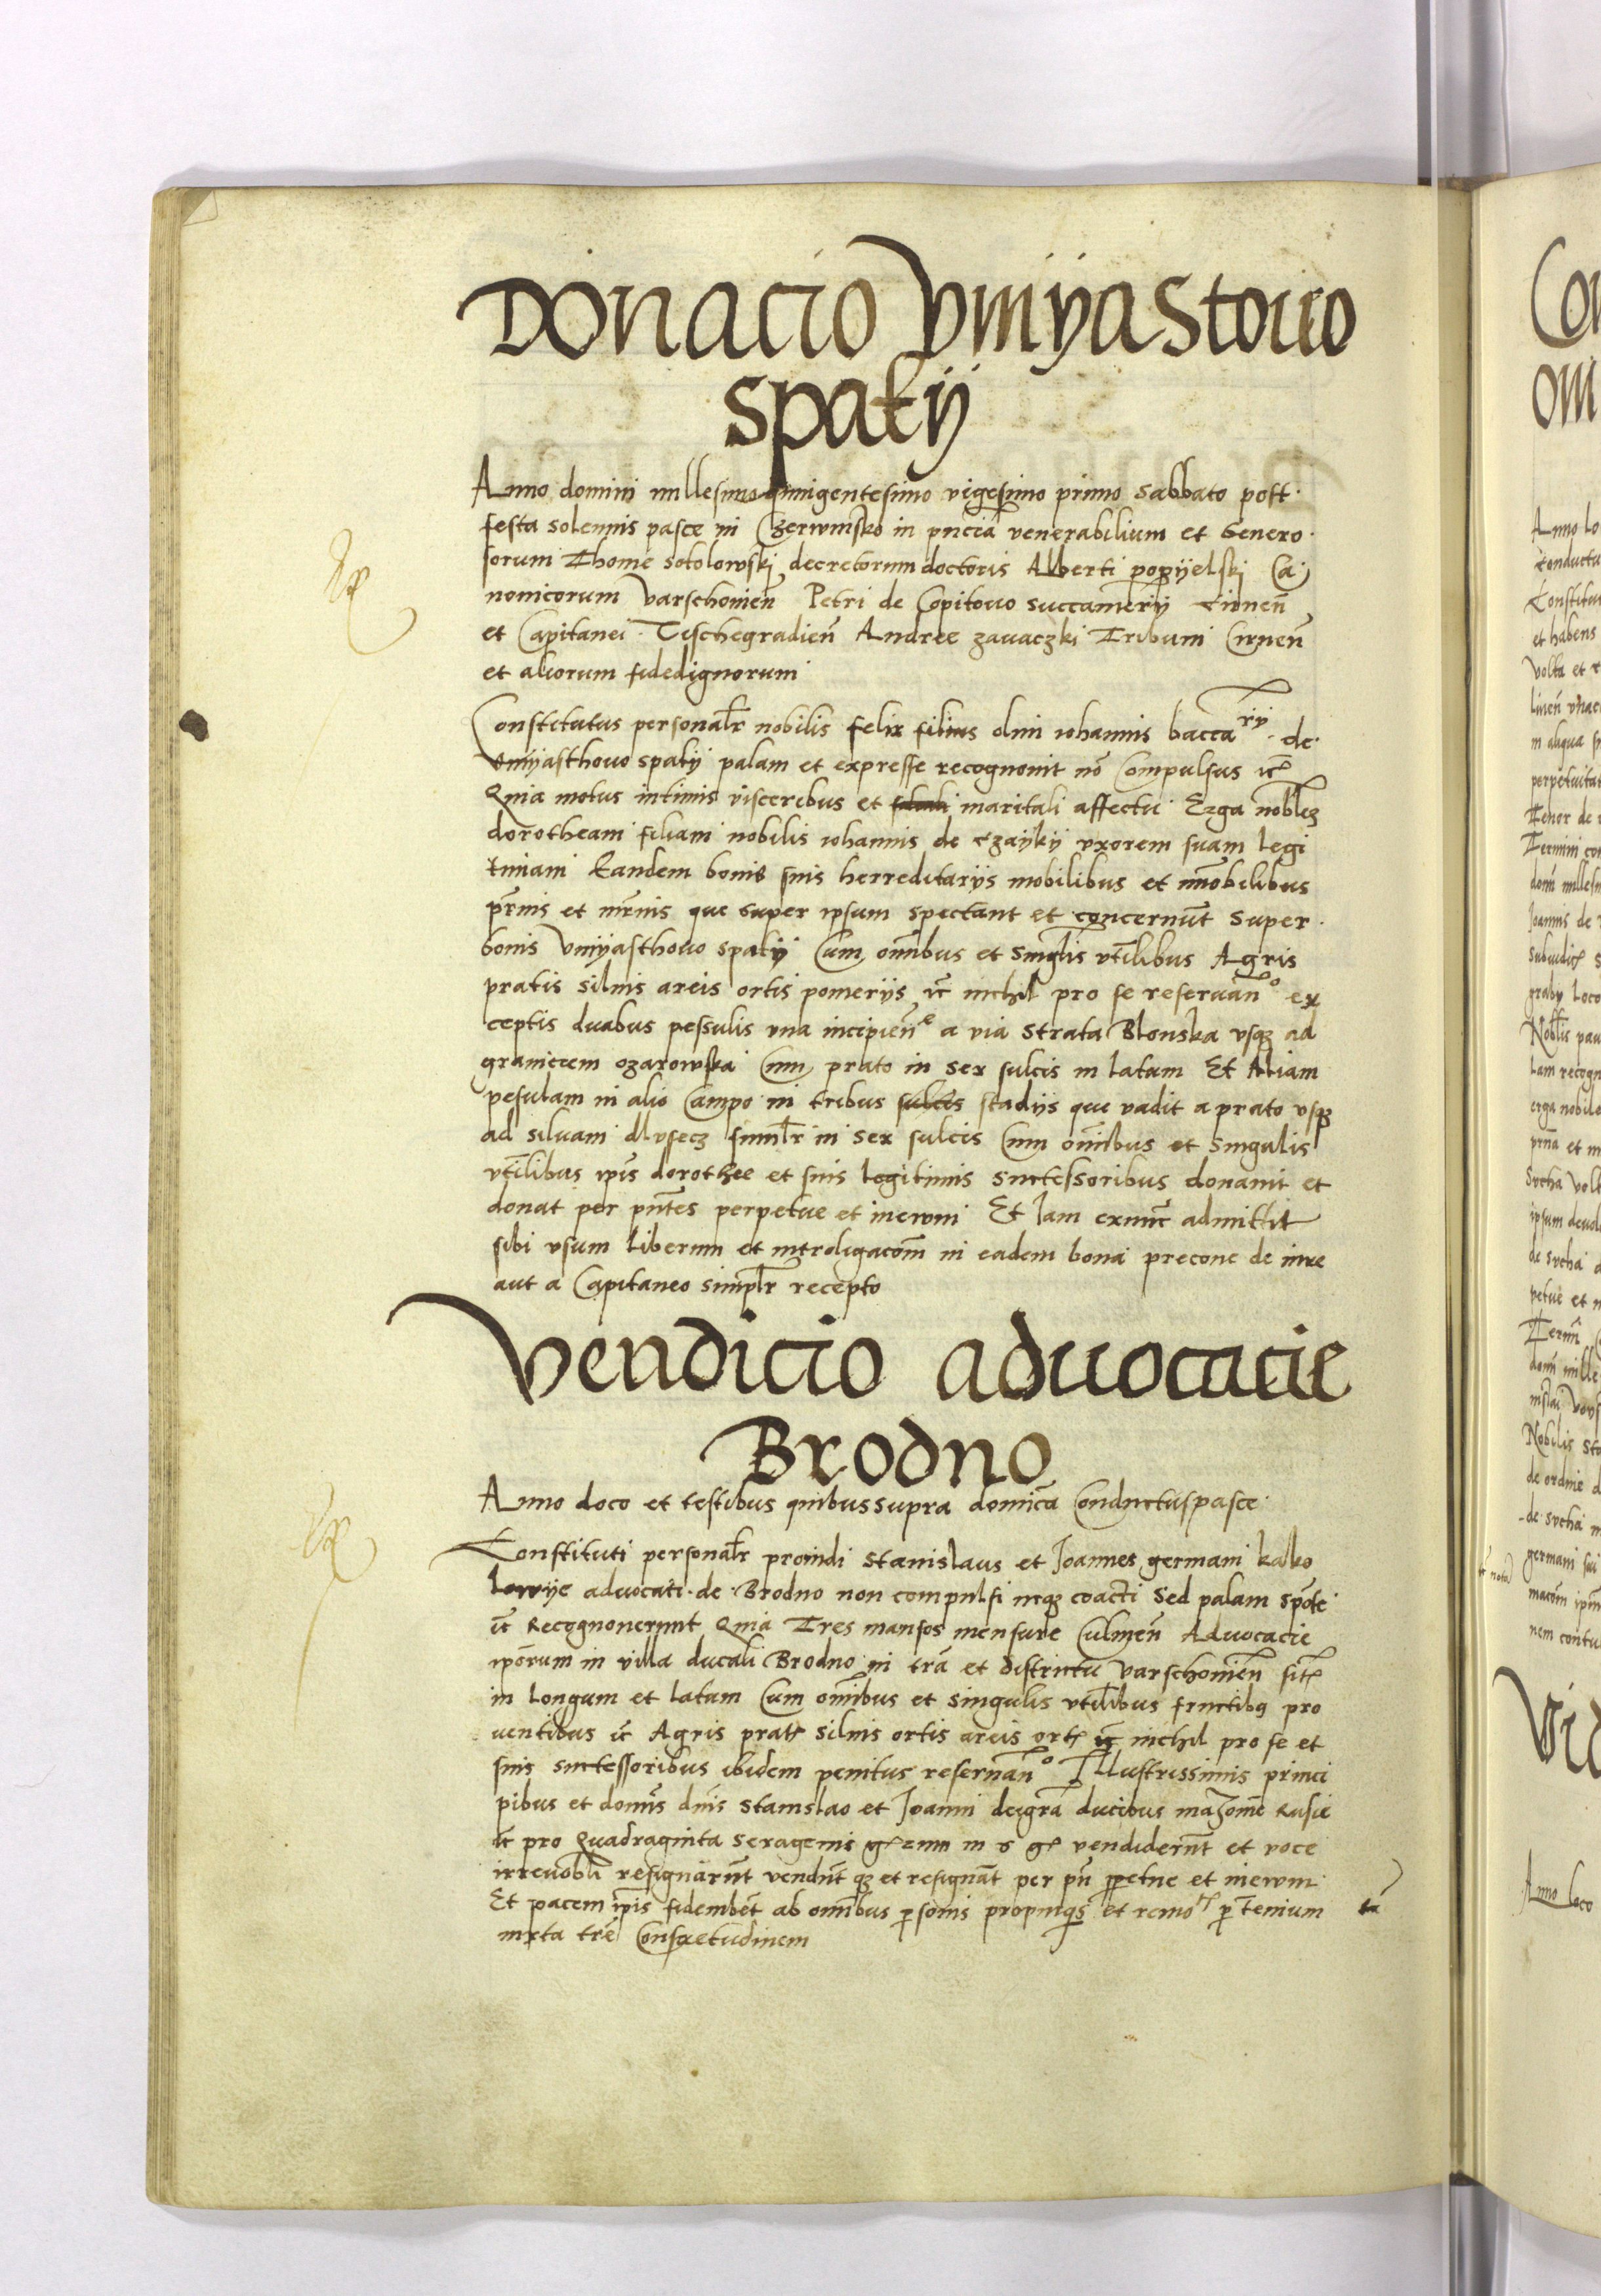 Donacio Vmÿastowo
spatÿ
Anno domini millesimo quingentesimo vigesimo primo Sabbato post
festa solennis pasce in Czerwinsko in pn̄cia venerabilium et Genero
sorum Thome sokolowskj decretorum doctoris Alberti popyelski Ca
nonicorum varschouien̄ Petri de Copitowo succamerÿ
et Capitanei Vischegradien̄ Andree zauaczki Tribuni Cirnen̄
et aliorum fidedignorum
Constitutus personal̄r nobilis felix filius olim iohannis baccarÿ de
vmÿasthowo spatÿ palam et expresse recognouit nō Compulsus ic̄
Quia motus intimis visceribus et maritali affectu Erga nobilez
dorotheam filiam nobilis iohannis de czaÿkÿ vxorem suam legi
timam Eandem bonis suis herreditarÿs mobilibus et īmobilibus
pr̄nis et mr̄nis que super ipsum spectant et concernūt super
bonis vmÿasthowo spatÿ Cum om̄ibus et singl̄is vtīlibus Agris
pratis siluis areis ortis pomerÿs ic̄ nichil pro se reseruan̄o ex
ceptis duabus pessulis vna incipien̄e a via strata Blonska vsqȝ ad
graniciem ozarowska Cum prato in sex sulcis in latum Et Aliam
pesulam in alio Campo in tribus sulcis stadÿs que vadit a prato vsqȝ
ad siluam dlvsecz simil̄r in sex sulcis Cum om̄ibus et singulis
vtīlibus ip̄is dorothee et suis legitimis successoribus donauit et
donat per pn̄tes perpetue et ineuum Et Iam exnūc admittit
sibi vsum liberum et introligacom̄ in eadem bona precone de iure
aut a Capitaneo simpl̄r recepto
Vendicio aduocacie
Brodno
Anno loco et testibus quibus supra domīca Conductus pasce
Constituti personal̄r prouidi Stanislaus et Joannes germani kalko
lowÿe aduocati de Brodno non compulsi neqȝ coacti Sed palam spōte
ic̄ Recognouerunt Quia Tres mansos mensure Culmen̄ Aduocacie
ip̄orum in villa ducali Brodno in trā et districtu varschouien̄ sitꝭ
in longum et latum Cum om̄ibus et singulis vtilibus fructibꝰ pro
uentibus ic̄ Agris pratꝭ siluis ortis areis ortꝭ ic̄ nichil pro se et
suis successoribus ibidem penitus reseruan̄o Illustrissimis princi
pibus et domīs dn̄is Stanislao et Joanni deigrā ducibus mazouie Rusie
ic̄ pro Quadraginta sexagenis vendiderūt et voce
irreuobl̄i resignarūt vendūt qȝ et resignāt per pn̄ ꝑpetue et ineuum
Et pacem ip̄is fidembēt ab om̄ibus ꝑsonis propinquis et remotꝭ ꝑ Tenium ta
iuxta trē Consuetudinem